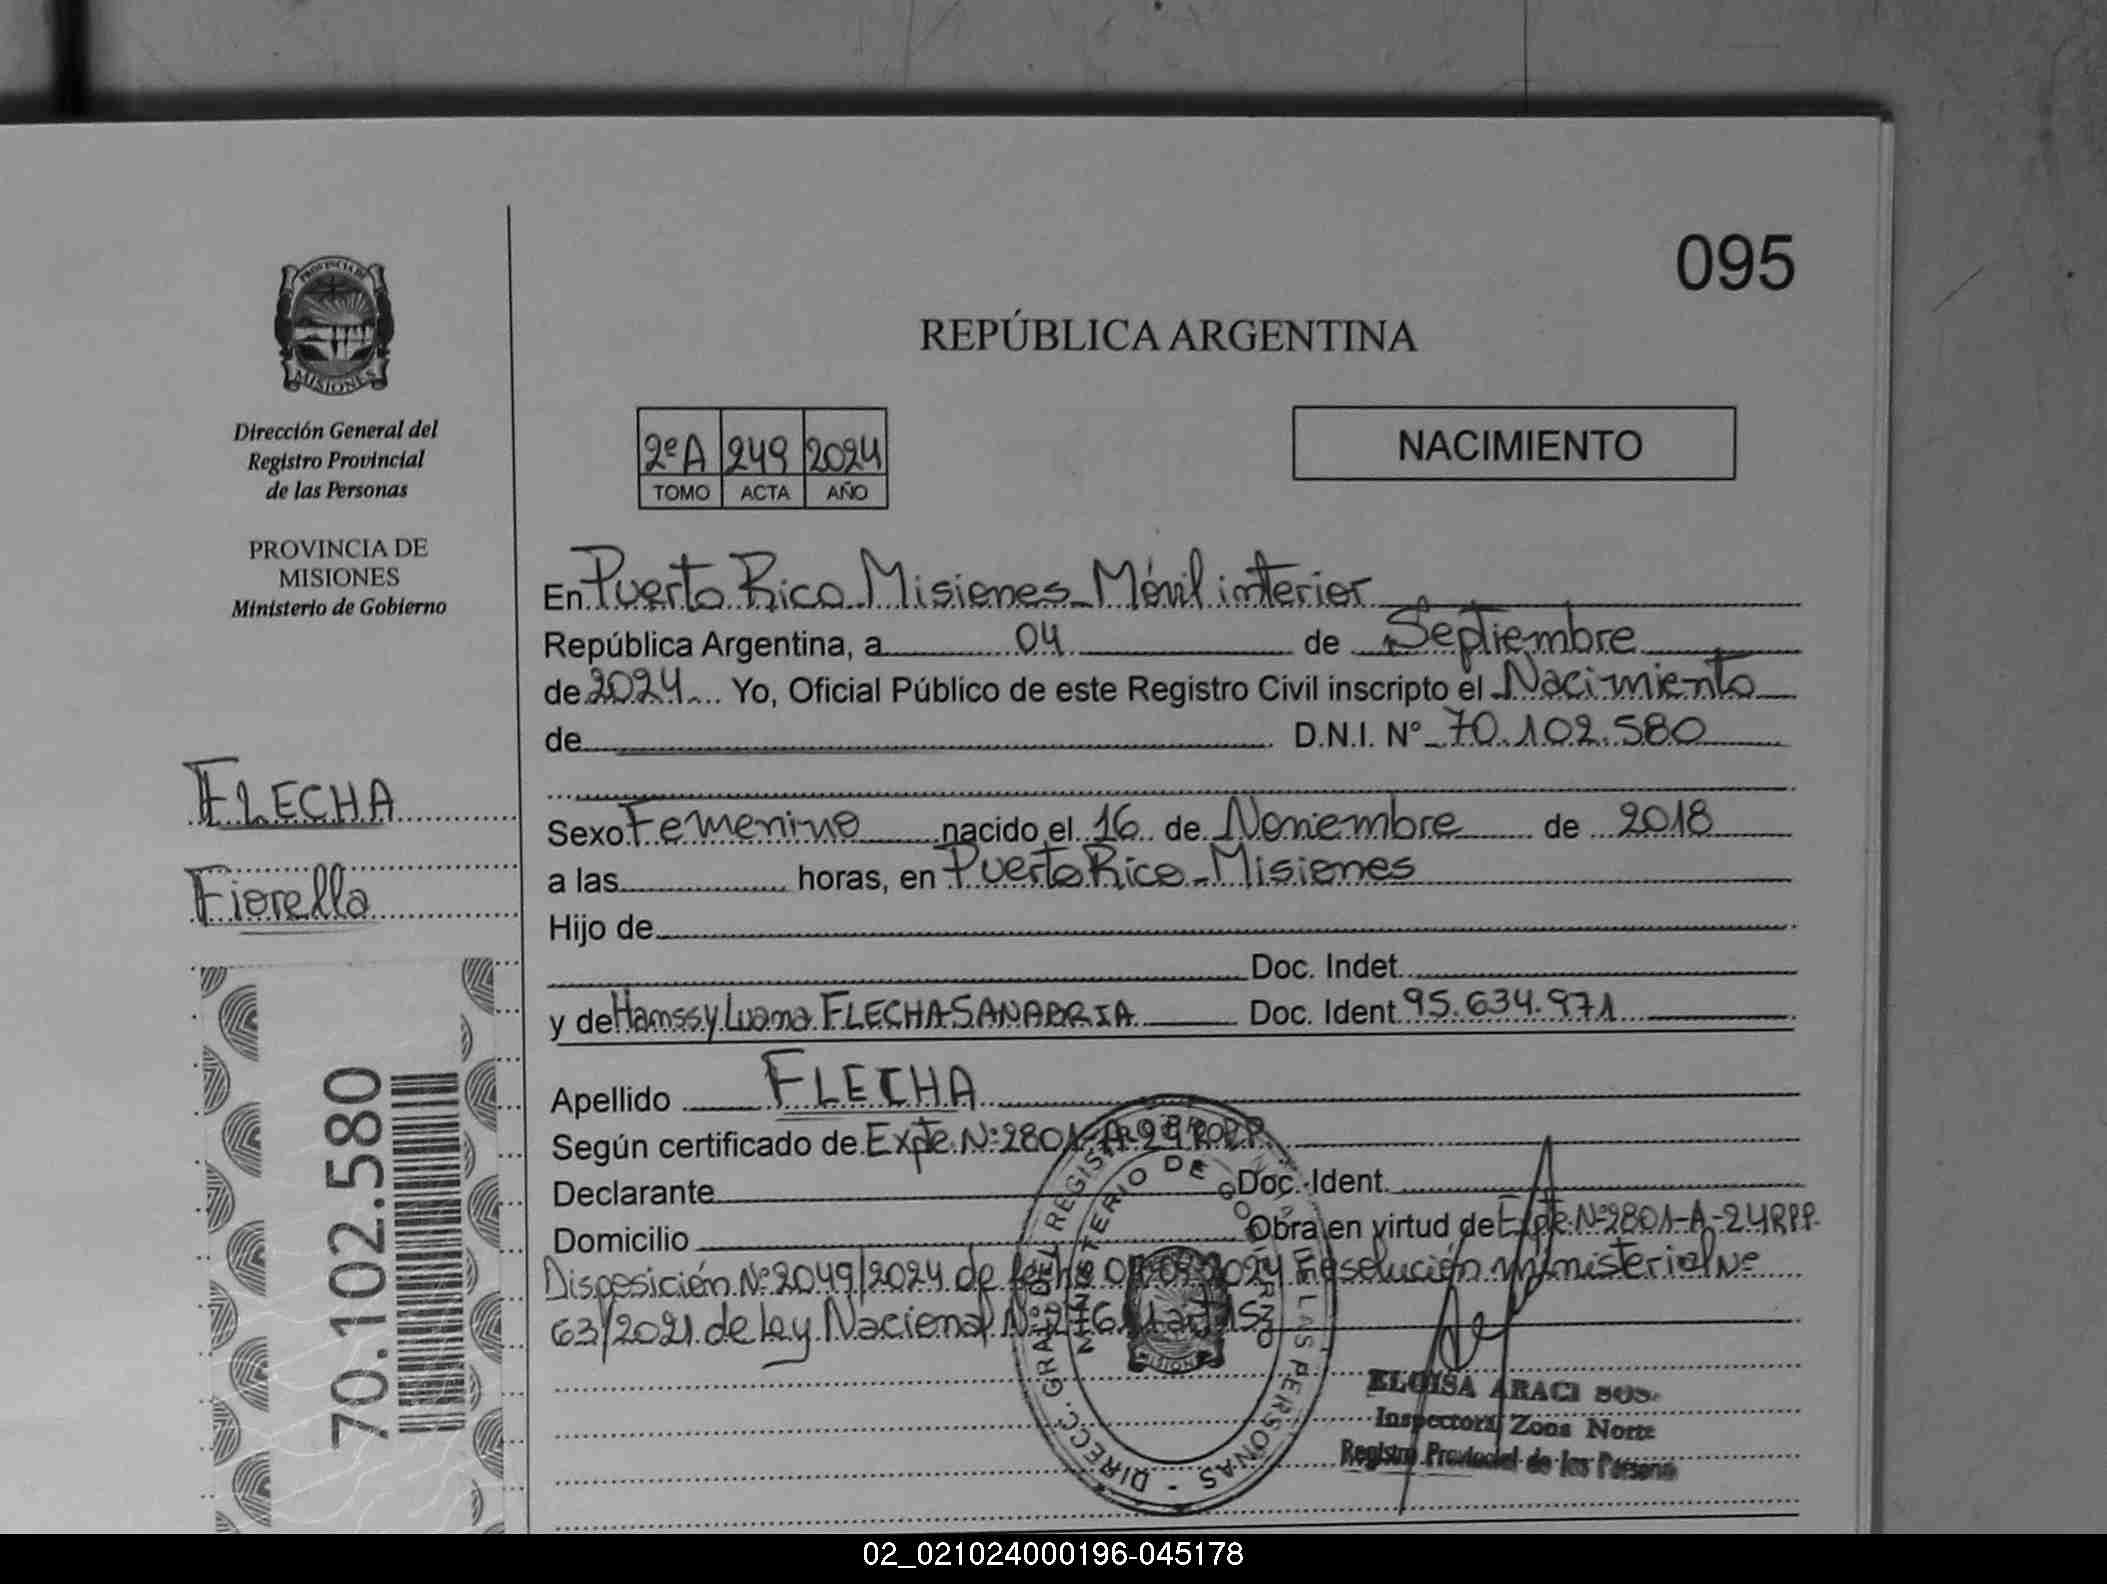 095
PROVINCIA DE
MISIONES
Dirección General del
Registro Provincial
de las Personas
PROVINCIA DE
MISIONES
Ministerio de Gobierno
FLECHA
Fiorella
70.102.580
REPÚBLICA ARGENTINA
2ºA 249 2024
TOMO ACTA AÑO
NACIMIENTO
En Puerto Rico Misiones Móvil interior
República Argentina, a 04 de Septiembre
de 2024 Yo, Oficial Público de este Registro Civil inscripto el Nacimiento
de D.N.I. Nº 70.102.580
Sexo Femenino nacido el 16 de Noviembre de 2018
a las horas, en Puerto Rico Misiones
Hijo de
Doc. Indet.
y de Hamssy Luana FLECHA SANABRIA Doc. Ident 95.634.971
Apellido FLECHA
Según certificado de Expte Nº 2801-A-24 R.P.P.
Declarante Doc. Ident.
Domicilio Obra en virtud de Expte Nº 2801-A-24 RPP.
Disposición Nº 2049/2024 de fecha 2024 Resolución ministerial Nº
63/2021 de Ley Nacional Nº
DIRECC. GRAL. DEL REGISTRO PROV. DE LAS PERSONAS -
MINISTERIO DE GOBIERNO
MISIONES
ELOISA ARACI
Inspectora Zona Norte
Registro Provincial de las Personas
02_021024000196-045178